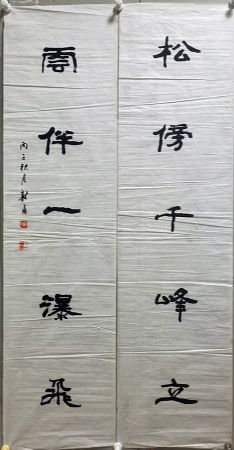 松傍千峰立
雲伴一瀑飛
丙子秋月